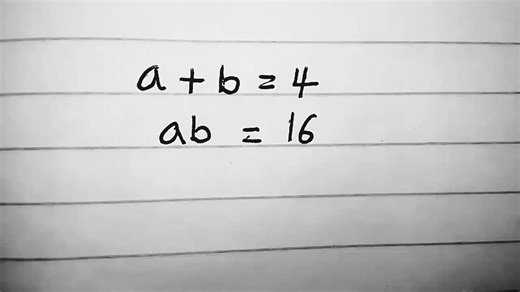 a + b = 4
ab = 16